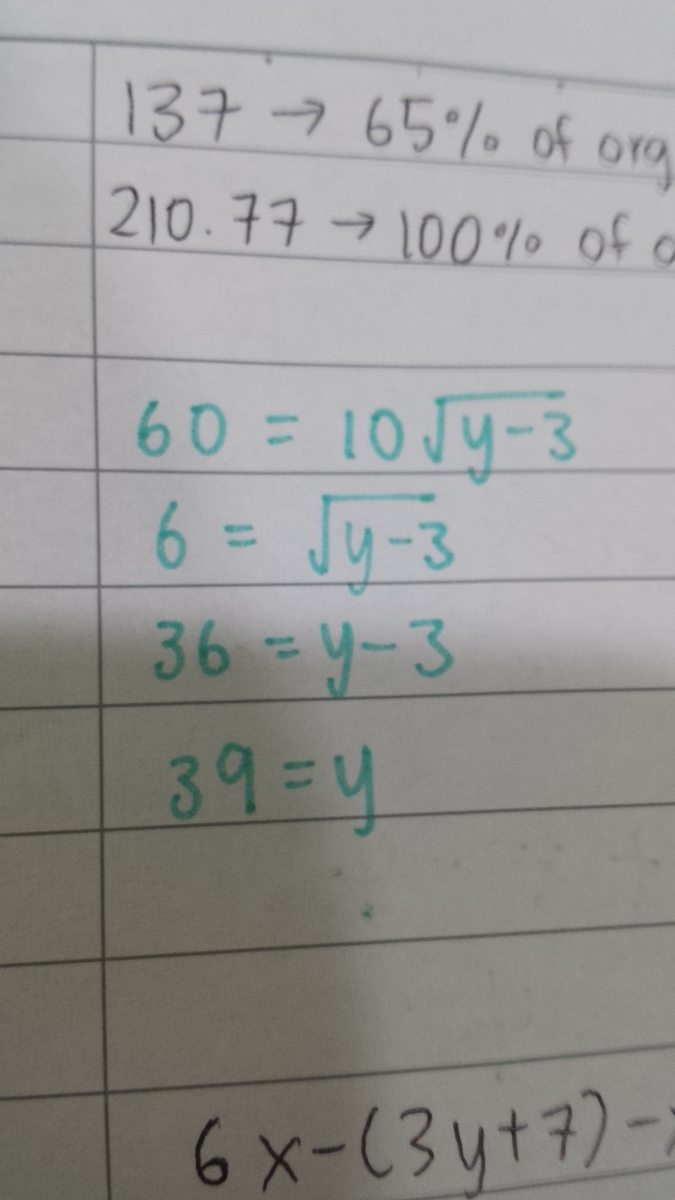 137 → 65% of org
210.77 → 100% of
60 = 10√(y-3)
6 = √(y-3)
36 = y-3
39 = y
6x-(3y+7)-